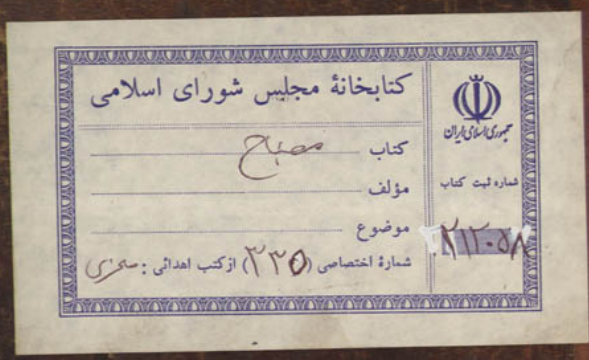 کتابخانهٔ مجلس شورای اسلامی
کتاب مصباح
مؤلف
موضوع
شمارهٔ اختصاصی (۳۳۵) از کتب اهدائی :
جمهوری اسلامی ایران
شماره ثبت کتاب
۲۱۲۰۵۸